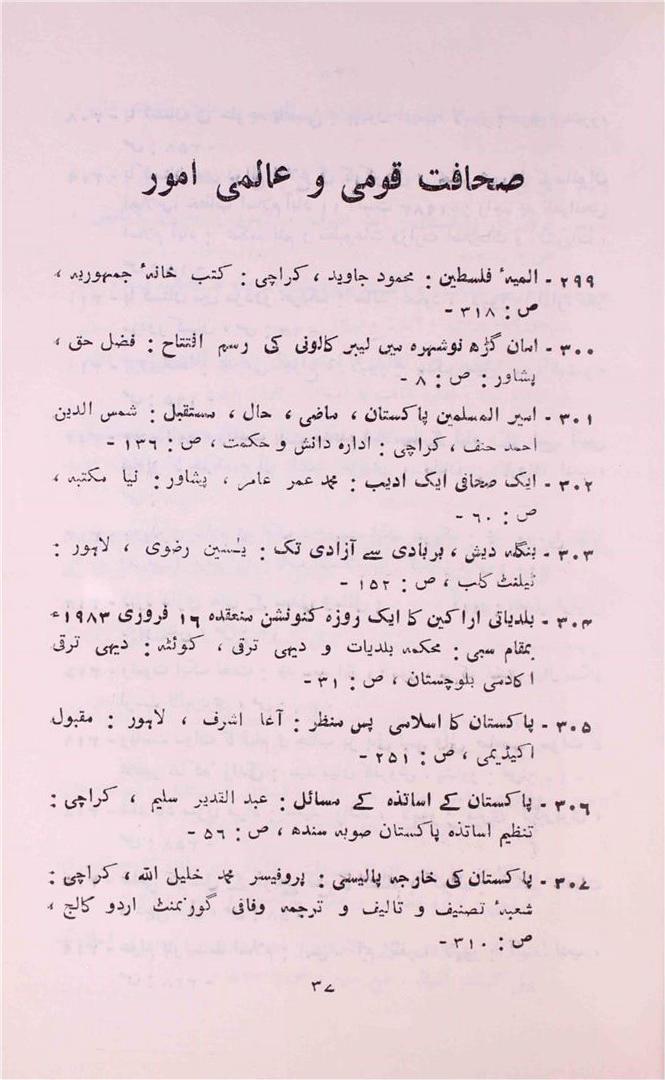 صحافت قومی و عالمی امور
۲۹۹ - المیۂ فلسطین : محمود جاوید ، کراچی : کتب خانۂ جمہوریہ ،
ص : ۳۱۸ -
۳۰۰ - امان گڑھ نوشہرہ میں لیبر کالونی کی رسم افتتاح : فضل حق ،
پشاور : ص : ۸ -
۳۰۱ - امیر المسلمین پاکستان ، ماضی ، حال ، مستقبل : شمس الدین
احمد حنف ، کراچی : ادارہ دانش و حکمت ، ص : ۱۳۶ -
۳۰۲ - ایک صحافی ایک ادیب : محمد عمر عامر ، پشاور : نیا مکتبہ ،
ص : ۶۰ -
۳۰۳ - بنگلہ دیش ، بربادی سے آزادی تک : یٰسین رضوی ، لاہور :
ٹیلنٹ کلب ، ص : ۱۵۲ -
۳۰۴ - بلدیاتی اراکین کا ایک روزہ کنونشن منعقدہ ۱۶ فروری ۱۹۸۳ء
بمقام سبی : محکمہ بلدیات و دیہی ترقی ، کوئٹہ : دیہی ترقی
اکادمی بلوچستان ، ص : ۳۱ -
۳۰۵ - پاکستان کا اسلامی پس منظر : آغا اشرف ، لاہور : مقبول
اکیڈیمی ، ص : ۲۵۱ -
۳۰۶ - پاکستان کے اساتذہ کے مسائل : عبد القدیر سلیم ، کراچی :
تنظیم اساتذہ پاکستان صوبہ سندھ ، ص : ۵۶ -
۳۰۷ - پاکستان کی خارجہ پالیسی : پروفیسر محمد خلیل اللہ ، کراچی :
شعبۂ تصنیف و تالیف و ترجمہ وفاقی گورنمنٹ اردو کالج ،
ص : ۳۱۰ -
۳۷